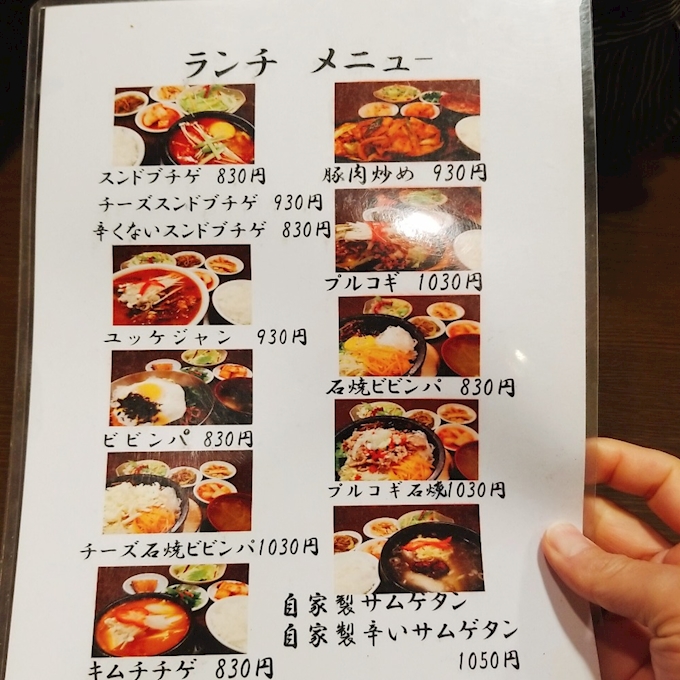 ランチ メニュー
スンドブチゲ 830円
チーズスンドブチゲ 930円
辛くないスンドブチゲ 830円
ユッケジャン 930円
ビビンパ 830円
チーズ石焼ビビンパ1030円
キムチチゲ 830円
豚肉炒め 930円
プルコギ 1030円
石焼ビビンパ 830円
プルコギ石焼1030円
自家製サムゲタン
自家製辛いサムゲタン
1050円